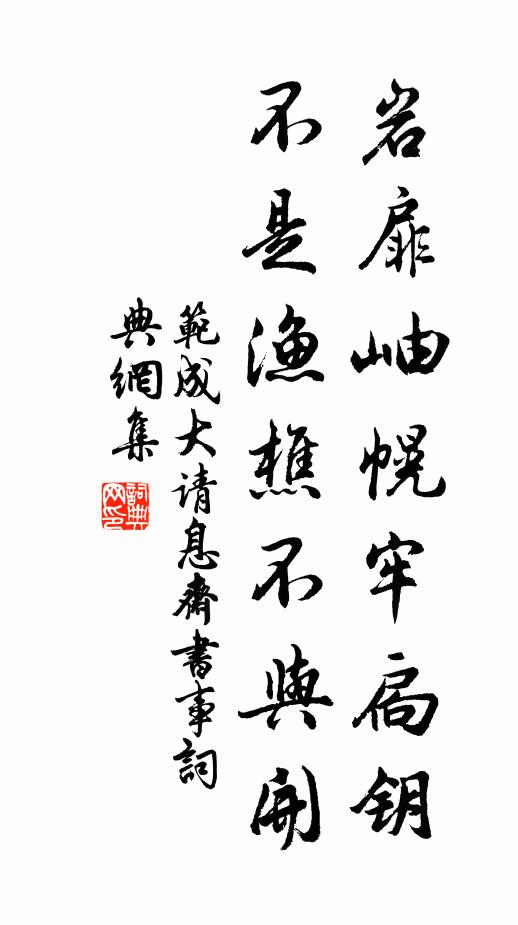 岩扉岫幌牢扃钥
不是渔樵不與開
範成大请息齋書事詞
典網集
詞典网印